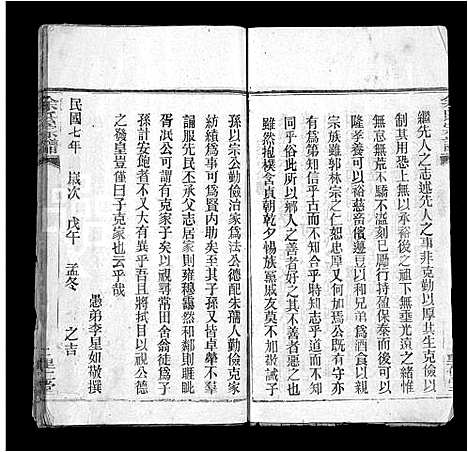 繼先人之志述先人之事非克勤以厚其生克儉以
制其用恐上無以承裕後之祖下無以垂光遠之緒惟
無怠無荒不驕不溢刻已勵行持盈保泰而後日
隆孝養可以裕慈音儐邊豆以和兄弟為酒食以燕
宗族雖郭林宗之仁恕忠厚又何加焉公既有守亦
有為第知信乎古而不知尚乎今知率乎義而不知
同乎俗此所以鄉人之善者好之其不善者惡之
雖然抱樸含貞朝乾夕惕族黨戚友莫不加敬誡子
孫以宗公勤儉治家為法公德配朱孺人勤儉克家
紡績為事可為賢內助矣生子孫又皆卓犖不羈
誦服先民丕承父志居家則雍穆靄然和鄰則睚眦
胥泯公可謂克家子矣以視尋常田舍翁徒為子
孫計安飽者不又大有異乎吾且將以視公德
之發皇豈僅曰子克家也云乎哉
民國七年　歲次　戊午　孟冬　之吉
愚弟李星如敬撰